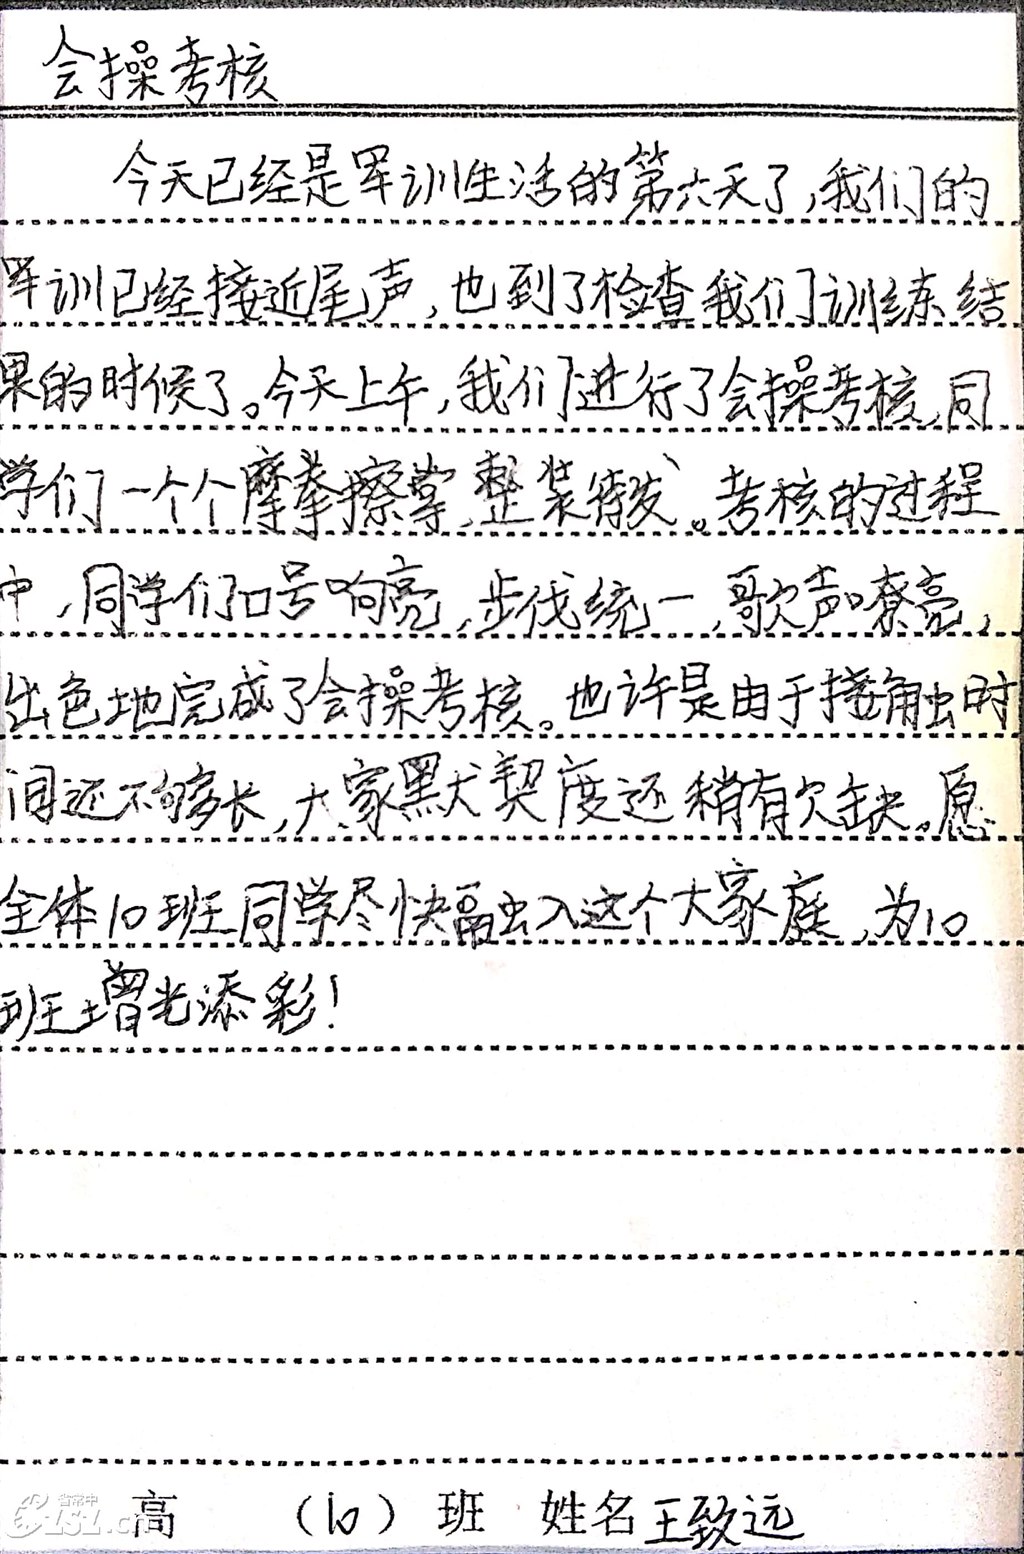 会操考核
今天已经是军训生活的第六天了,我们的
军训已经接近尾声,也到了检查我们训练结
果的时候了。今天上午,我们进行了会操考核,同
学们一个个摩拳擦掌,整装待发。考核的过程
中,同学们口号响亮,步伐统一,歌声嘹亮,
出色地完成了会操考核。也许是由于接触时
间还不够多长,大家默契度还稍有欠缺。愿
全体10班同学尽快融入这个大家庭,为10
班增光添彩!
高 (10) 班 姓名 王致远
省常中